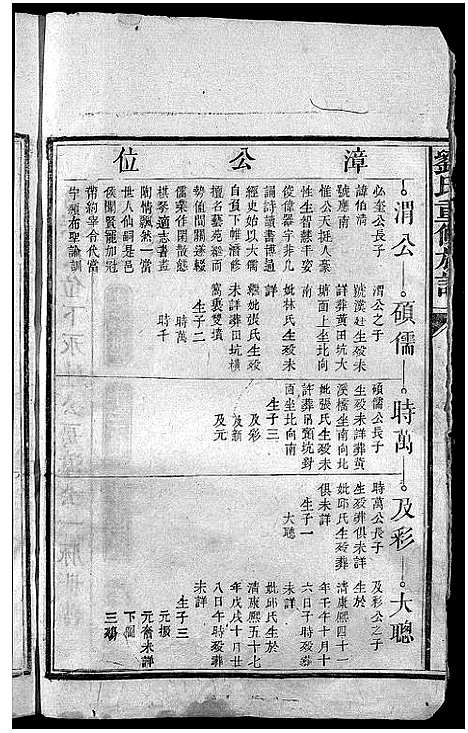 劉氏重修族譜
漳公位
渭公
碩儒
時萬
及彩
大聰
必奎公長子
諱伯清
號應南
惟公天挺人豪
性生智慧干姿
俊偉器宇非凡
誦詩讀書博通
經史始以大儒
自負下帷潛修
繼而
勢值間關逐輟
儒業作閒散態
棋琴適志書畫
陶情飄然一當
世人仙嗣是邑
侯聞賢寵加冠
帶約宰合代當
宇頒布聖諭訓
渭公之子
號漢
生歿未
詳葬黃田坑大
塘面上坐北向
南
妣林氏生歿未
詳
繼妣張氏生歿
未詳葬田坑橫
窩裏雙墳
生子二
時萬
時千
碩儒公長子
生歿未詳葬黃
溪橋坐南向北
妣張氏生歿未
詳葬吊頸坑對
面坐北向南
生子三
及彩
及新
及元
時萬公長子
生歿葬俱未詳
妣邱氏生歿葬
俱未詳
生子一
大聰
及彩公之子
生於
清康熙四十一
年壬午十月十
六日子時歿葬
未詳
妣邱氏生於
清康熙五十七
年戊戌十月廿
八日午時歿葬
未詳
生子三
元振
元喬未詳
下個
三瑞